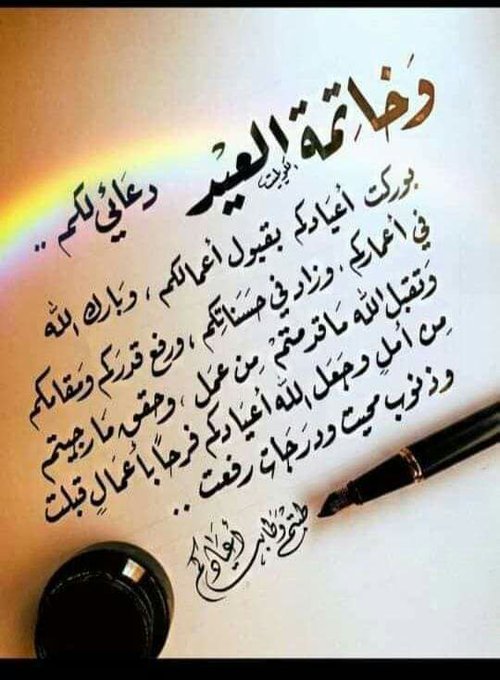 وَخَاتِمة العيْد دعَائي لكم ..
بوركت أعيَادكم بقبول أعمالكم ، وَبَارك الله
في أعماركم ، وزاد في حسَناتكم ، ورفع قدرَكم ومَقامكم
وَتقبل الله مَا قدمتمْ مِن عمَل ، وحقق مَا رجيتم
مِن أملٍ وجعَل الله أعيَادكم فرحاً بأعمَالٍ قبلت
وذنوب محيت ودرجَات رفعت ..
طبتمْ وَطابت أعيَادكم